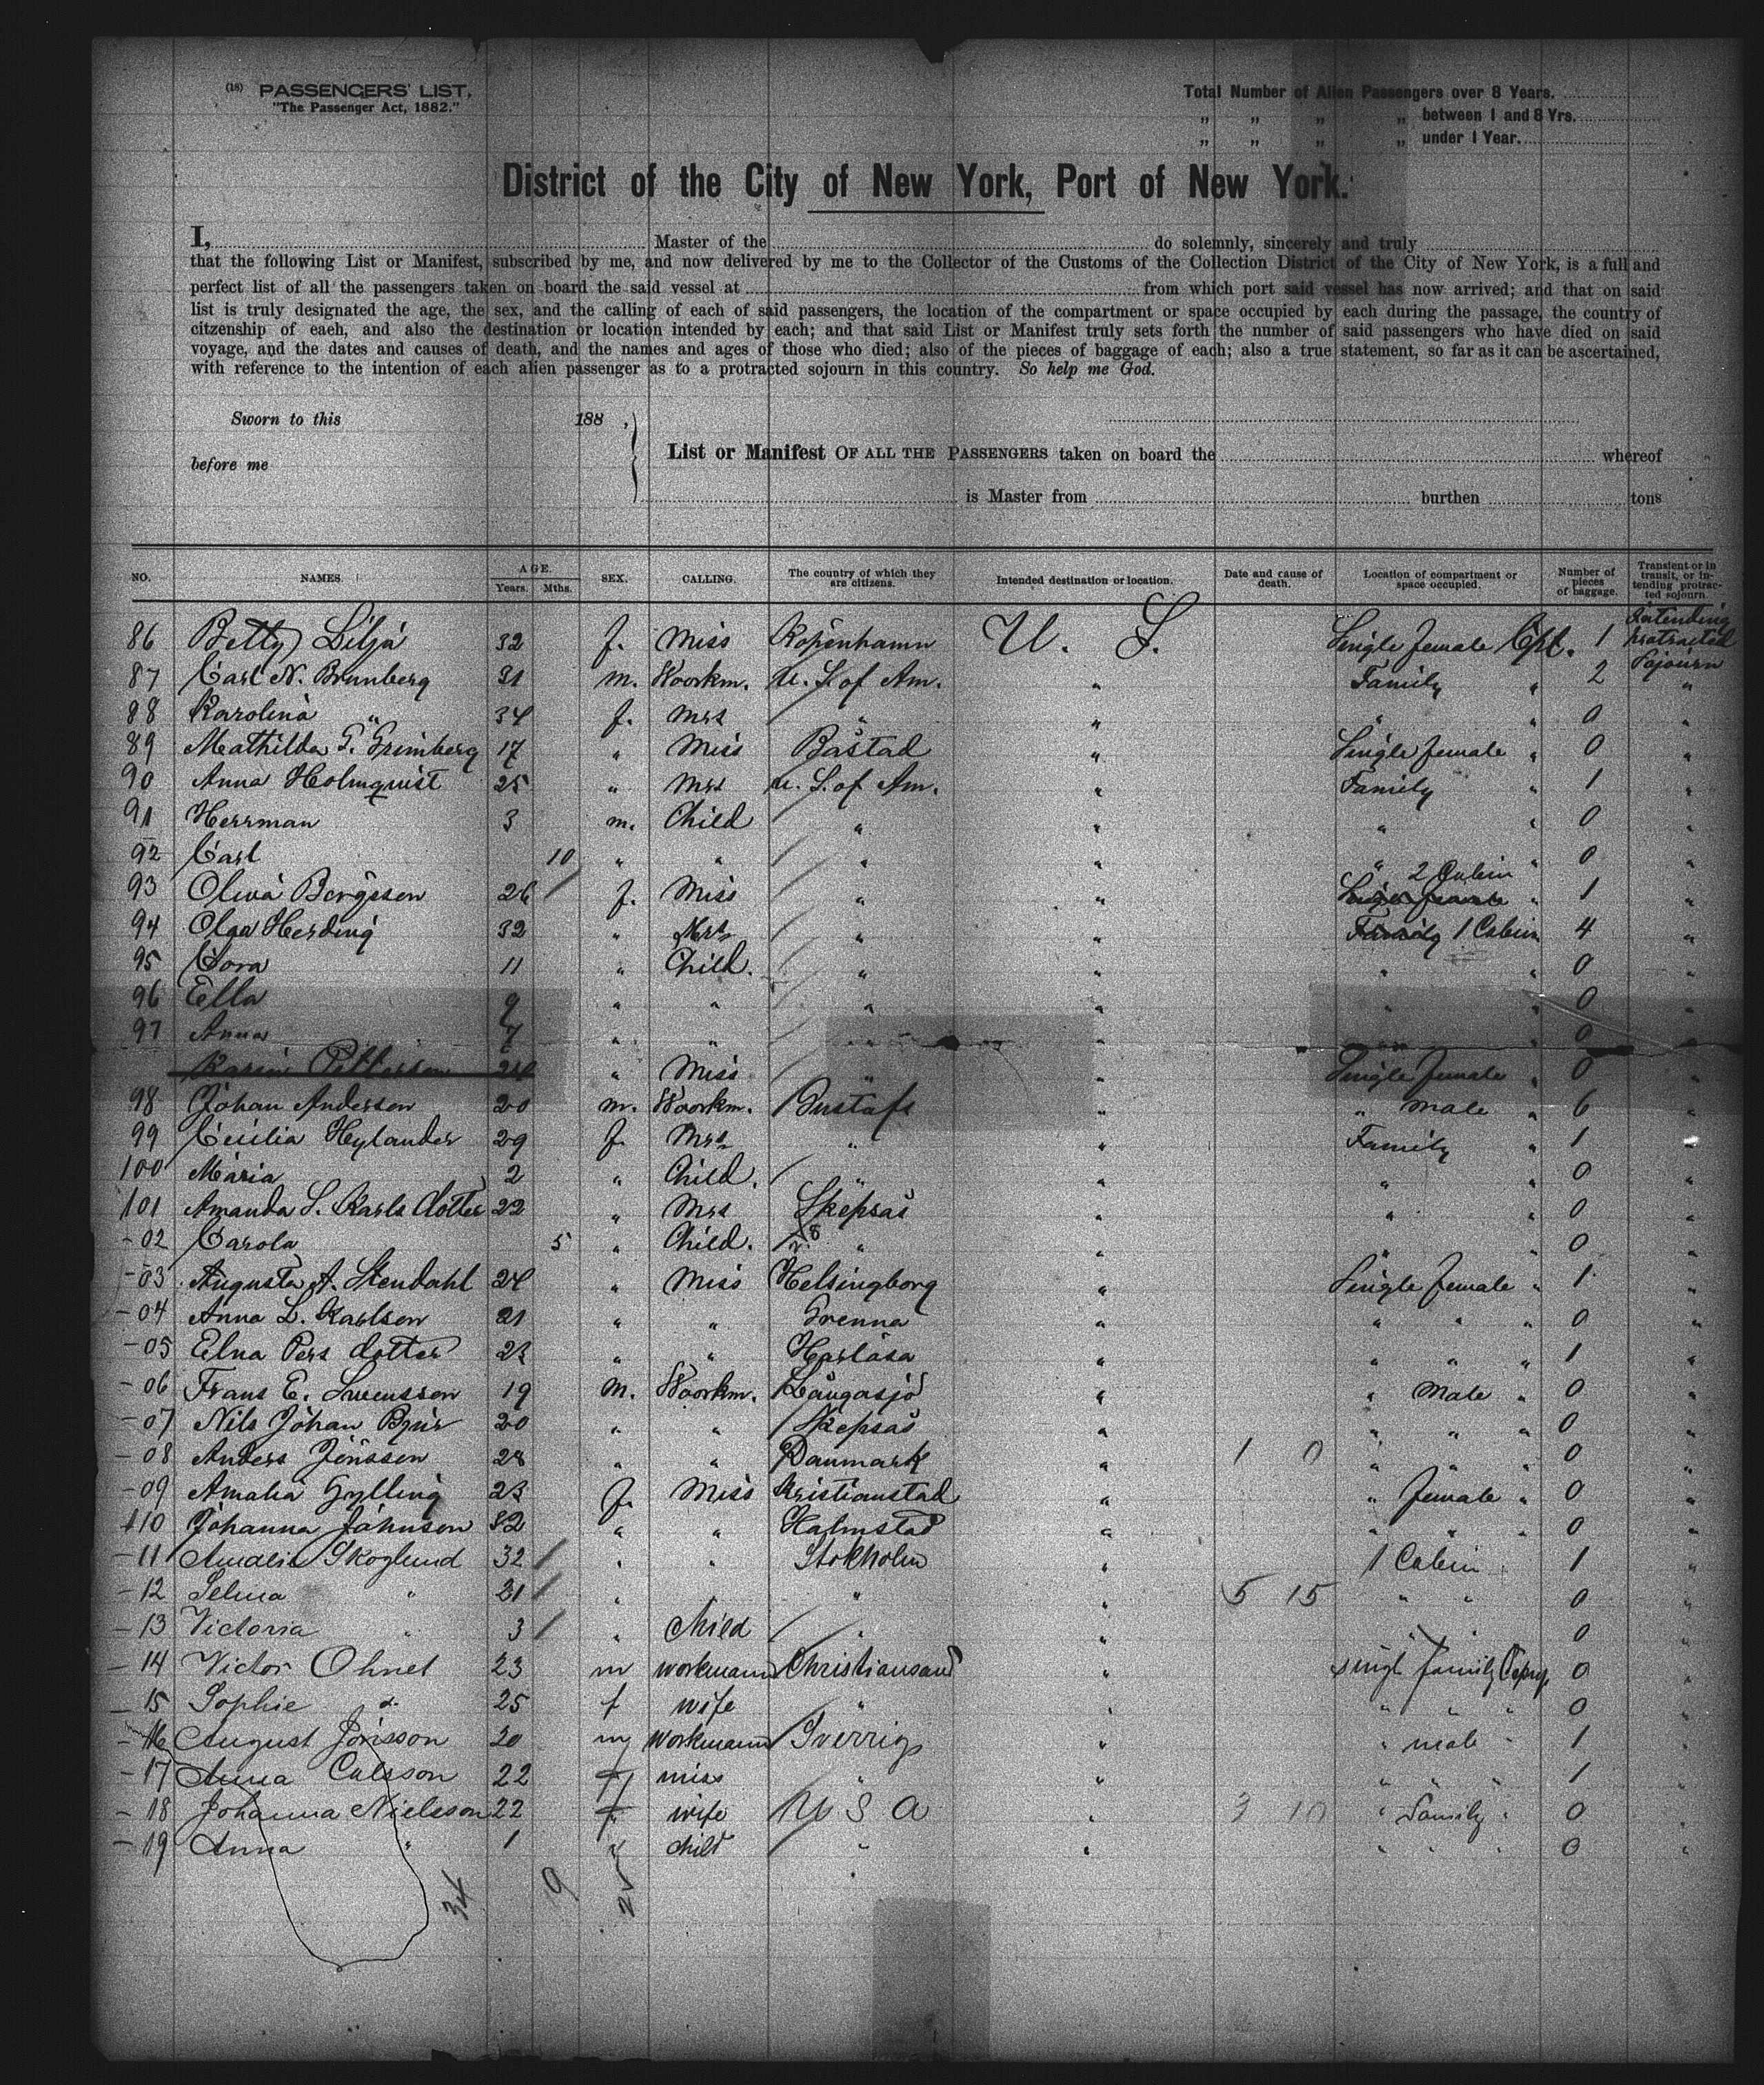 (18) PASSENGERS' LIST.
"The Passenger Act, 1882."
Total Number of Alien Passengers over 8 Years.
„ „ „ „ between 1 and 8 Yrs.
„ „ „ „ under 1 Year.
District of the City of New York, Port of New York.
I, Master of the do solemnly, sincerely and truly
that the following List or Manifest, subscribed by me, and now delivered by me to the Collector of the Customs of the Collection District of the City of New York, is a full and
perfect list of all the passengers taken on board the said vessel at from which port said vessel has now arrived; and that on said
list is truly designated the age, the sex, and the calling of each of said passengers, the location of the compartment or space occupied by each during the passage, the country of
citzenship of eaeh, and also the destination or location intended by each; and that said List or Manifest truly sets forth the number of said passengers who have died on said
voyage, and the dates and causes of death, and the names and ages of those who died; also of the pieces of baggage of each; also a true statement, so far as it can be ascertained,
with reference to the intention of each alien passenger as to a protracted sojourn in this country. So help me God.
Sworn to this 188 ,
before me
List or Manifest OF ALL THE PASSENGERS taken on board the whereof
is Master from burthen tons
NO. NAMES. AGE. Years. Mths. SEX. CALLING. The country of which they are citizens. Intended destination or location. Date and cause of death. Location of compartment or space occupied. Number of pieces of baggage. Transient or in transit, or intending protracted sojourn.
86 Betty Lilja 32 f. Miss Kopenhamn U. S. Single female Cpt. 1 Intending protracted Sojourn
87 Carl N. Brunberg 31 m. Woorkm. U. S. of Am. " Family " 2 "
88 Karolina " 34 f. Mrs " " " " 0 "
89 Mathilda G. Grimberg 17 " Miss Båstad " Single female " 0 "
90 Anna Holmquist 25 " Mrs U. S. of Am. " Family " 1 "
91 Herrman 3 m. Child " " " " 0 "
92 Carl 10 " " " " " " 0 "
93 Oliva Bergsson 26 f. Miss " " 2 Cabin " 1 "
94 Olga Herding 32 " Mrs " " Family 1 Cabin 4 "
95 Cora 11 " Child. " " " " 0 "
96 Ella 9 " " " " " " 0 "
97 Anna 7 " " " " " " 0 "
Karin Petterson 24 " Miss " " Single female " 0 "
98 Johan Anderson 20 m. Woorkm. Gustafs " " male " 6 "
99 Cecilia Hylander 29 f. Mrs " " Family " 1 "
100 Maria 2 " Child. " " " " 0 "
101 Amanda S. Karls dotter 22 " Mrs Skepsås " " 0 "
-02 Carola 5 " Child. " " " " 0 "
-03 Augusta A. Stendahl 24 " Miss Helsingborg " Single female " 1 "
-04 Anna L. Karlson 21 " " Grenna " " " " 0 "
-05 Elna Pers dotter 23 " " Harlösa " " " " 1 "
-06 Frans E. Swensson 19 m. Woorkm. Långasjö " " Male " 0 "
-07 Nils Johan 20 " " Skepsås " " " " 0 "
-08 Anders Jönsson 28 " " Danmark " 1 0 " " " 0 "
-09 Amalia Gylling 23 f. Miss Kristianstad " " female " 0 "
110 Johanna Johnson 32 " " Halmstad " " " " 0 "
-11 Amalie Skoglund 32 " " Stokholm " 1 Cabin 1 "
-12 Selma " 21 " " " 5 15 " " 0 "
-13 Victoria " 3 " child " " " " 0 "
-14 Victor Ohnel 23 m workmann Christiansand " singl family Cpny. 0 "
-15 Sophie d. 25 f wife " " " " " 0 "
-16 August Jönsson 20 m workmann Sverrig " " male " 1 "
-17 Anna Calsson 22 f miss " " " " " 1 "
-18 Johanna Nielsson 22 f wife U S A " 3 10 " family " 0 "
-19 Anna " 1 " child " " " " " 0 "
34 9 25